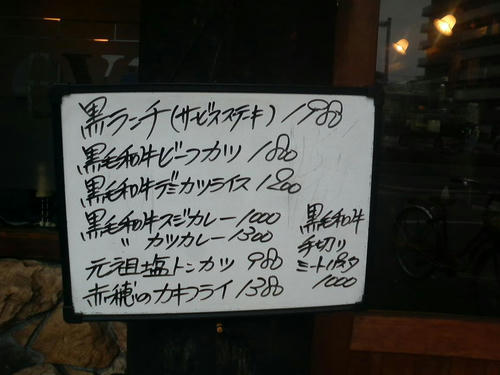 黒ランチ(サービスステーキ) 1980
黒毛和牛ビーフカツ 1880
黒毛和牛デミカツライス 1200
黒毛和牛スジカレー 1000
〃 カツカレー 1300
元祖塩トンカツ 980
赤穂のカキフライ 1380
黒毛和牛
手切り
ミート
1000